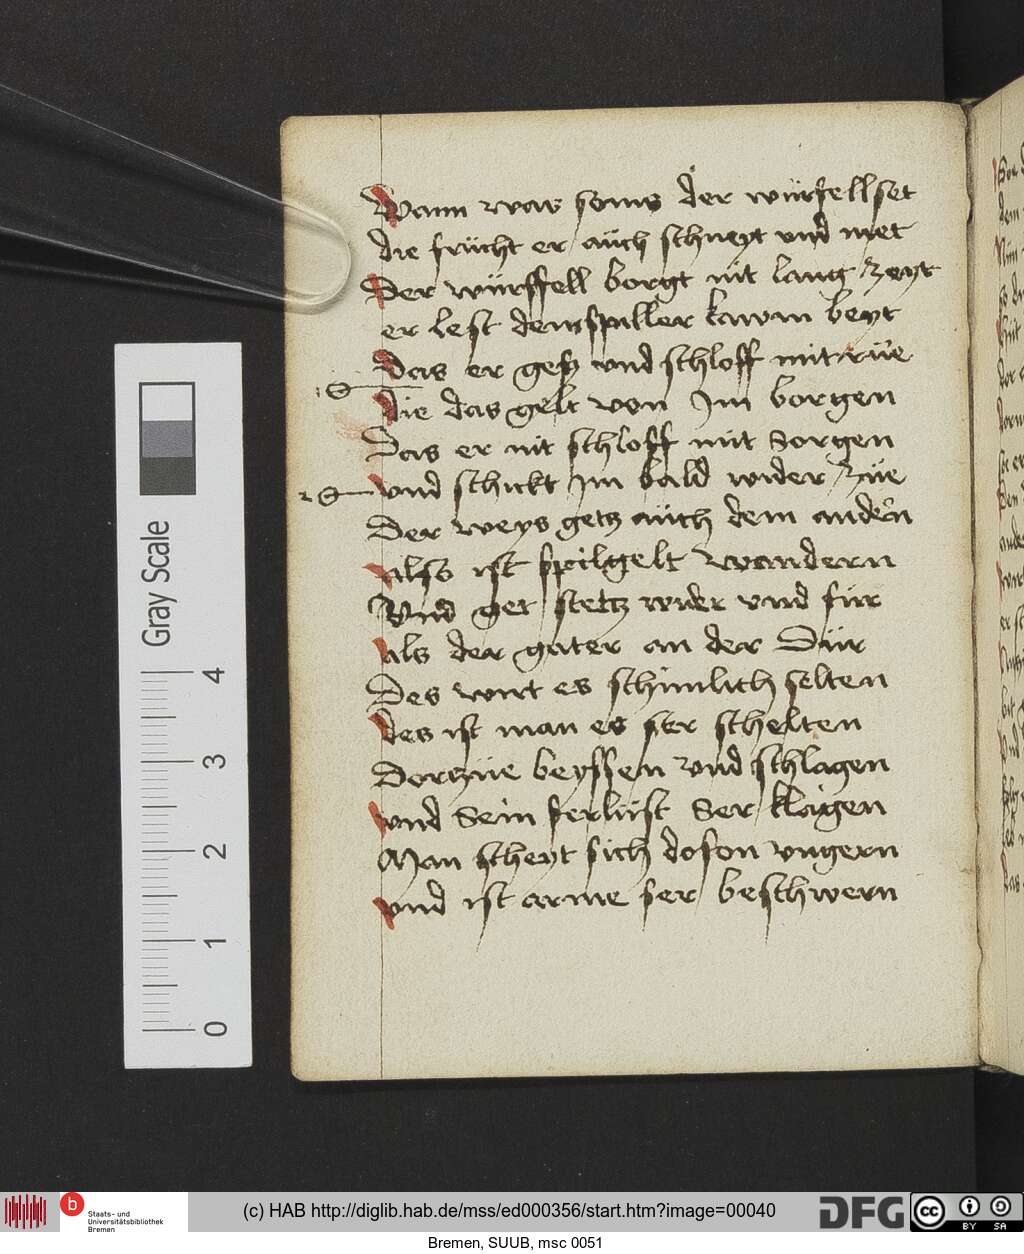 Wann was soms der würfell set
die frücht er auch schneyt vnd met
Der würffell borgt nit lang zeyt
er lest dem spiller kawm beyt
Das er geß vnd schloff mit rüe
die das gelt von Im borgen
Das er nit schloff mit sorgen
vnd schickt Im bald wider züe
Der weys getz auch dem andern
alss ist spilgelt wandern
Vnd get stetz wider vnd für
als der gater an der Dür
Des wirt es schimlich selten
des ist man es ser schelten
Dorzüe beyssen vnd schlagen
vnd sein ferlust ser klagen
Man scheyt sich dofon vngern
vnd ist arme ser beschwern
Gray Scale
4
3
2
1
0
b
Staats- und
Universitätsbibliothek
Bremen
(c) HAB http://diglib.hab.de/mss/ed000356/start.htm?image=00040
DFG
cc
BY SA
Bremen, SUUB, msc 0051